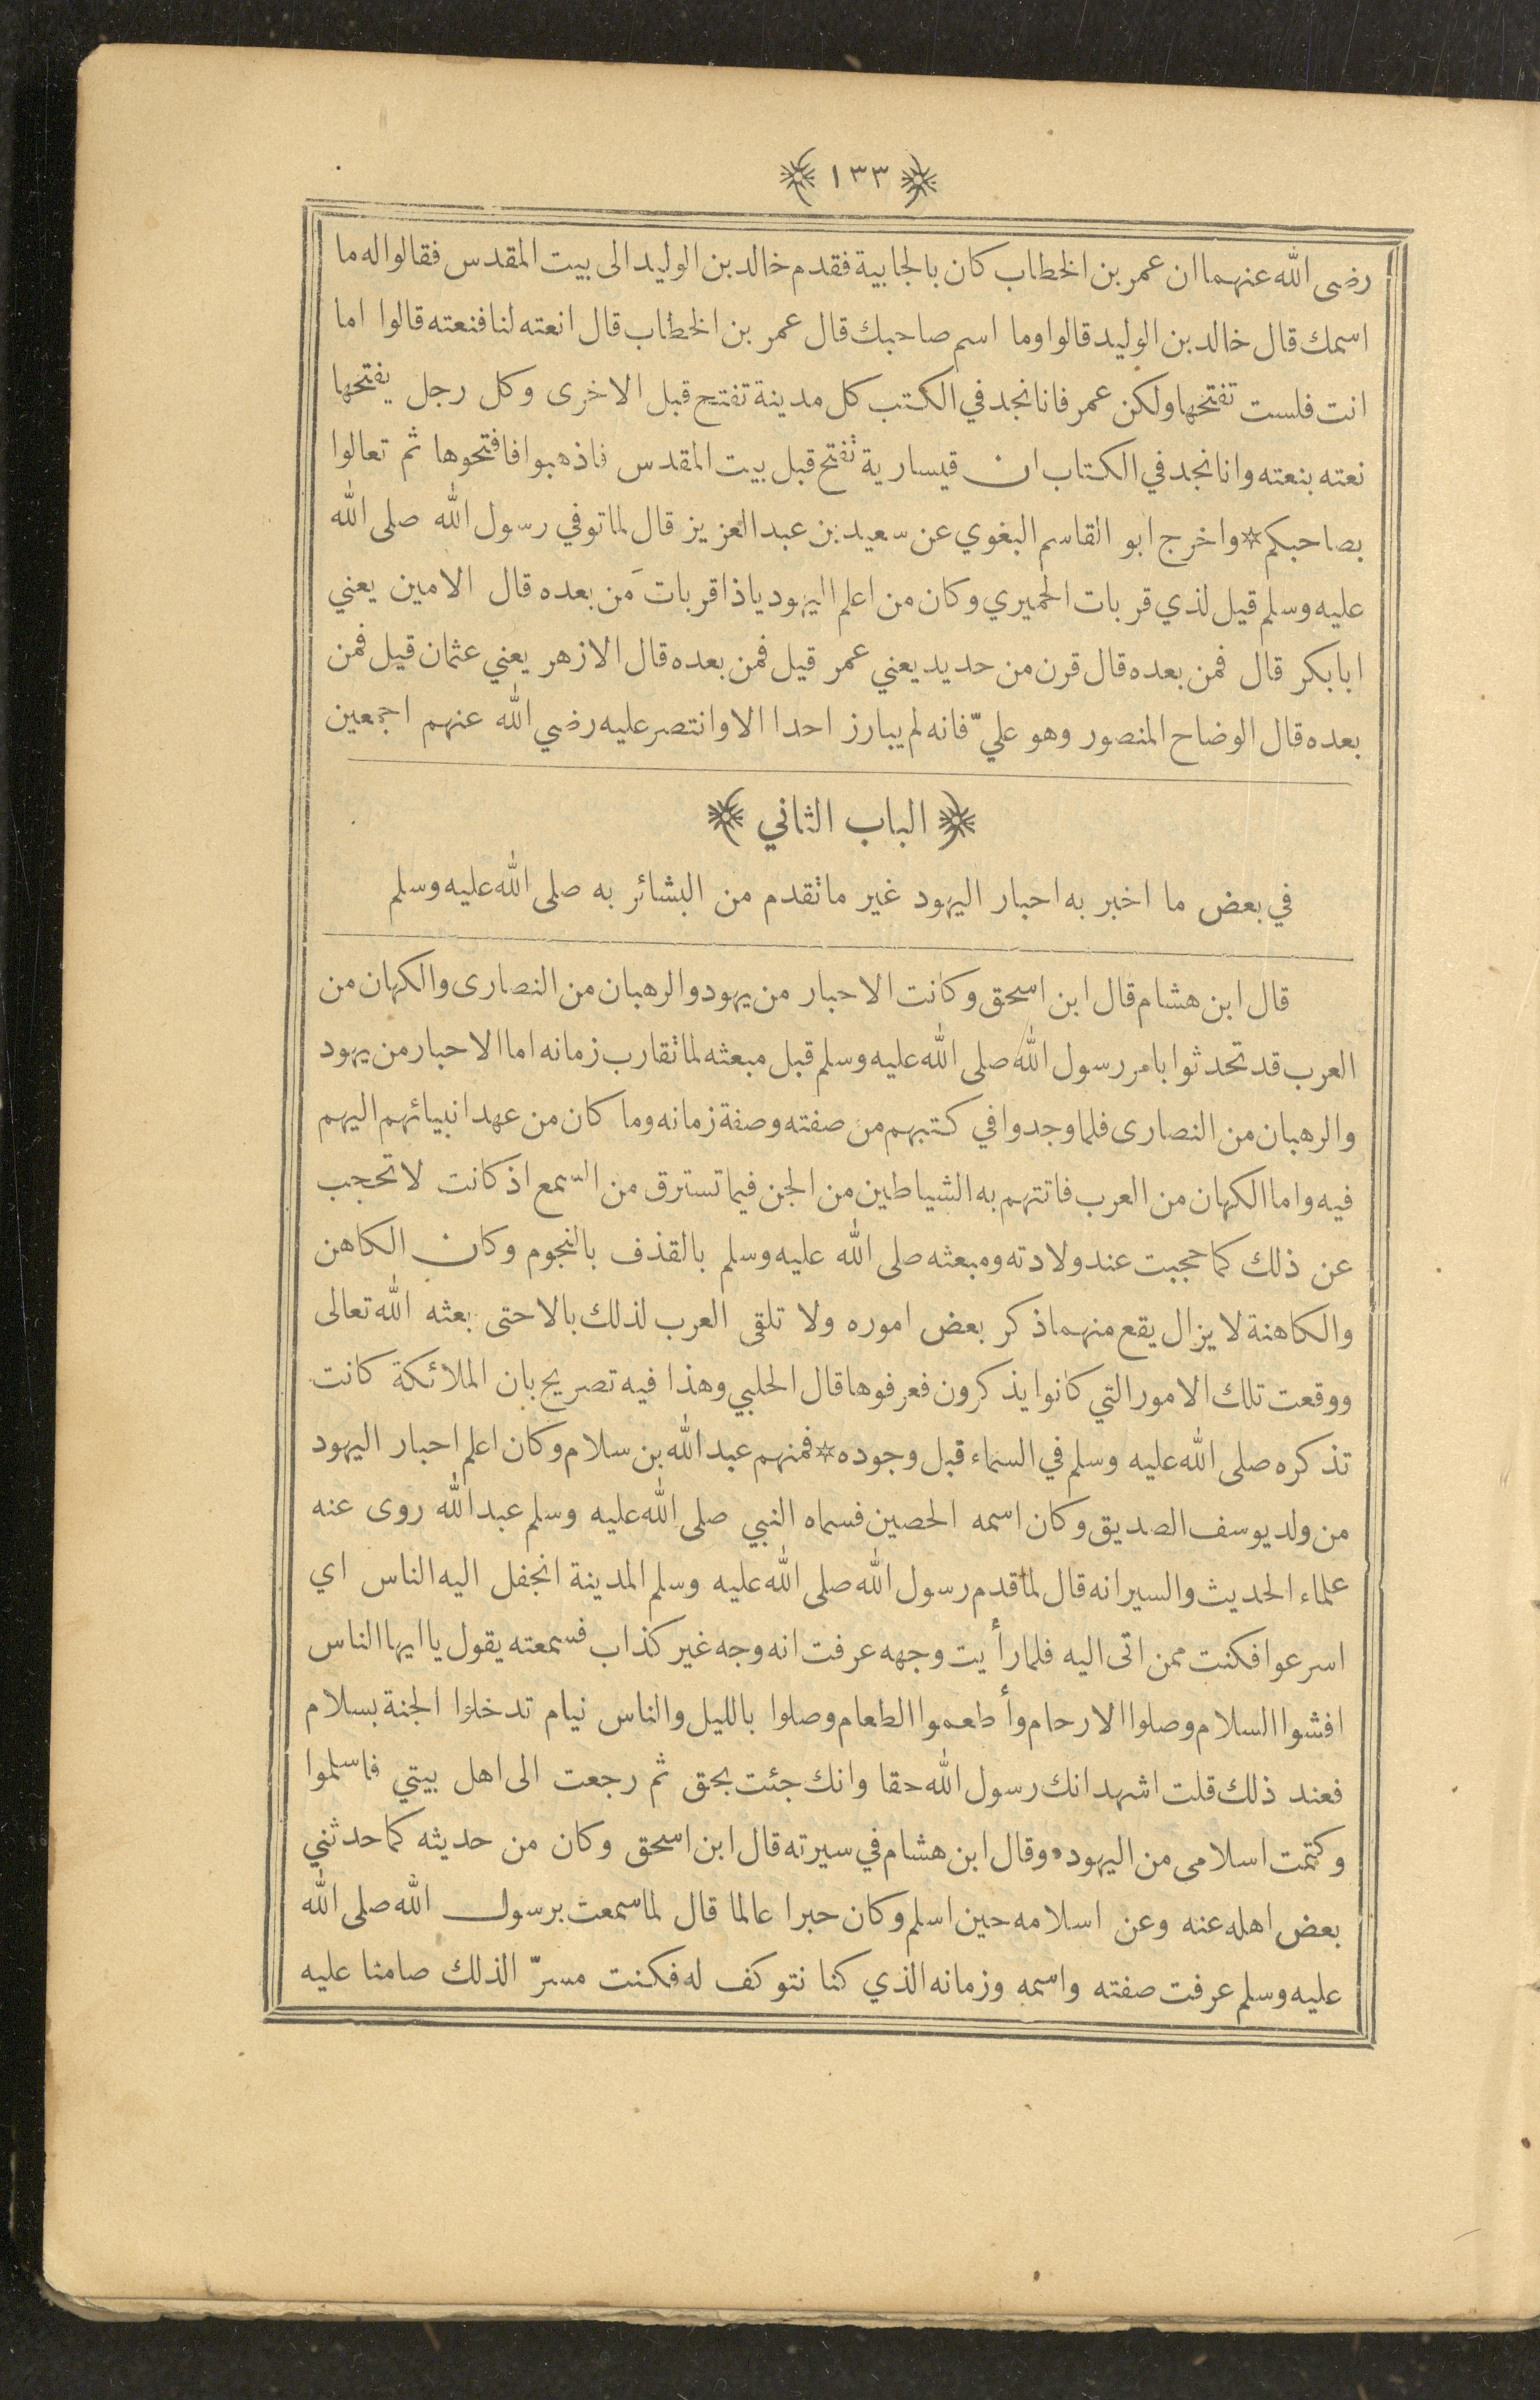 ﴿ ١٣٣ ﴾
رضى الله عنهما ان عمر بن الخطاب كان بالجابية فقدم خالد بن الوليد الى بيت المقدس فقالوا له ما
اسمك قال خالد بن الوليد قالوا وما اسم صاحبك قال عمر بن الخطاب قال انعته لنا فنعته قالوا اما
انت فلست تفتحها ولكن عمر فانا نجد في الكتب كل مدينة تفتح قبل الاخرى وكل رجل يفتحها
نعته بنعته وانا نجد في الكتاب ان قيسارية تفتح قبل بيت المقدس فاذهبوا فافتحوها ثم تعالوا
بصاحبكم * واخرج ابو القاسم البغوي عن سعيد بن عبد العزيز قال لما توفي رسول الله صلى الله
عليه وسلم قيل لذي قربات الحميري وكان من اعلم اليهود ياذا قربات مَن بعده قال الامين يعني
ابا بكر قال فمن بعده قال قرن من حديد يعني عمر قيل فمن بعده قال الازهر يعني عثمان قيل فمن
بعده قال الوضاح المنصور وهو عليّ فانه لم يبارز احدا الا وانتصر عليه رضي الله عنهم اجمعين
﴿ الباب الثاني ﴾
في بعض ما اخبر به احبار اليهود غير ما تقدم من البشائر به صلى الله عليه وسلم
قال ابن هشام قال ابن اسحق وكانت الاحبار من يهود والرهبان من النصارى والكهان من
العرب قد تحدثوا بامر رسول الله صلى الله عليه وسلم قبل مبعثه لما تقارب زمانه اما الاحبار من يهود
والرهبان من النصارى فلما وجدوا في كتبهم من صفته وصفة زمانه وما كان من عهد انبيائهم اليهم
فيه واما الكهان من العرب فاتتهم به الشياطين من الجن فيما تسترق من السمع اذ كانت لا تحجب
عن ذلك كما حجبت عند ولادته ومبعثه صلى الله عليه وسلم بالقذف بالنجوم وكان الكاهن
والكاهنة لا يزال يقع منهما ذكر بعض اموره ولا تلقى العرب لذلك بالا حتى بعثه الله تعالى
ووقعت تلك الامور التي كانوا يذكرون فعرفوها قال الحلبي وهذا فيه تصريح بان الملائكة كانت
تذكره صلى الله عليه وسلم في السماء قبل وجوده * فمنهم عبد الله بن سلام وكان اعلم احبار اليهود
من ولد يوسف الصديق وكان اسمه الحصين فسماه النبي صلى الله عليه وسلم عبد الله روى عنه
علماء الحديث والسير انه قال لما قدم رسول الله صلى الله عليه وسلم المدينة انجفل اليه الناس اي
اسرعوا فكنت ممن اتى اليه فلما رأيت وجهه عرفت انه وجه غير كذاب فسمعته يقول يا ايها الناس
افشوا السلام وصلوا الارحام وأطعموا الطعام وصلوا بالليل والناس نيام تدخلوا الجنة بسلام
فعند ذلك قلت اشهد انك رسول الله حقا وانك جئت بحق ثم رجعت الى اهل بيتي فاسلموا
وكتمت اسلامى من اليهود • وقال ابن هشام في سيرته قال ابن اسحق وكان من حديثه كما حدثني
بعض اهله عنه وعن اسلامه حين اسلم وكان حبرا عالما قال لما سمعت برسول الله صلى الله
عليه وسلم عرفت صفته واسمه وزمانه الذي كنا نتوكف له فكنت مسرّا لذلك صامتا عليه